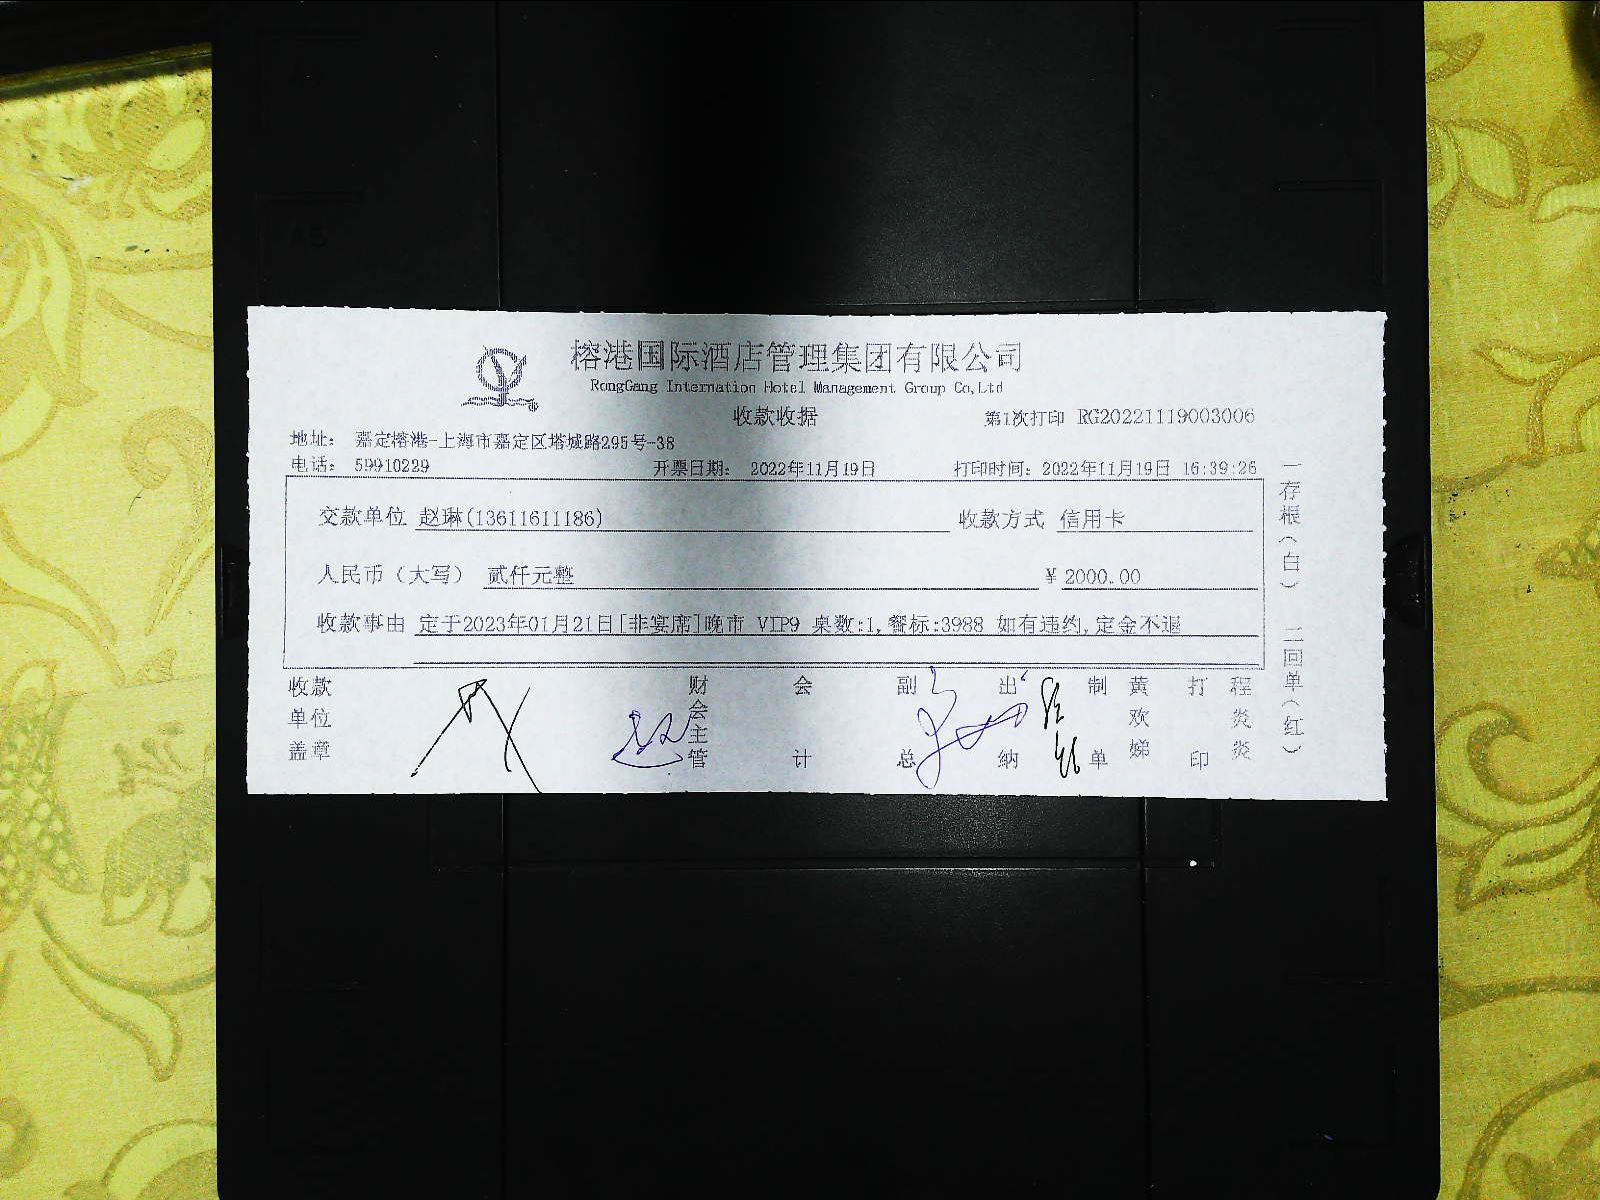 榕港国际酒店管理集团有限公司
RongGang Internation Hotel Management Group Co,Ltd
收款收据
第1次打印 RG20221119003006
地址: 嘉定榕港-上海市嘉定区塔城路295号-38
电话: 59910229 开票日期: 2022年11月19日 打印时间: 2022年11月19日 16:39:26
交款单位 赵琳(13611611186) 收款方式 信用卡
人民币（大写） 贰仟元整 ¥ 2000.00
收款事由 定于2023年01月21日[非宴席]晚市 VIP9 桌数:1,餐标:3988 如有违约,定金不退
收款单位盖章 财会主管 会计 副总 出纳 制单 黄欢娣 打印 程炎炎
一存根（白） 二回单（红）
A5